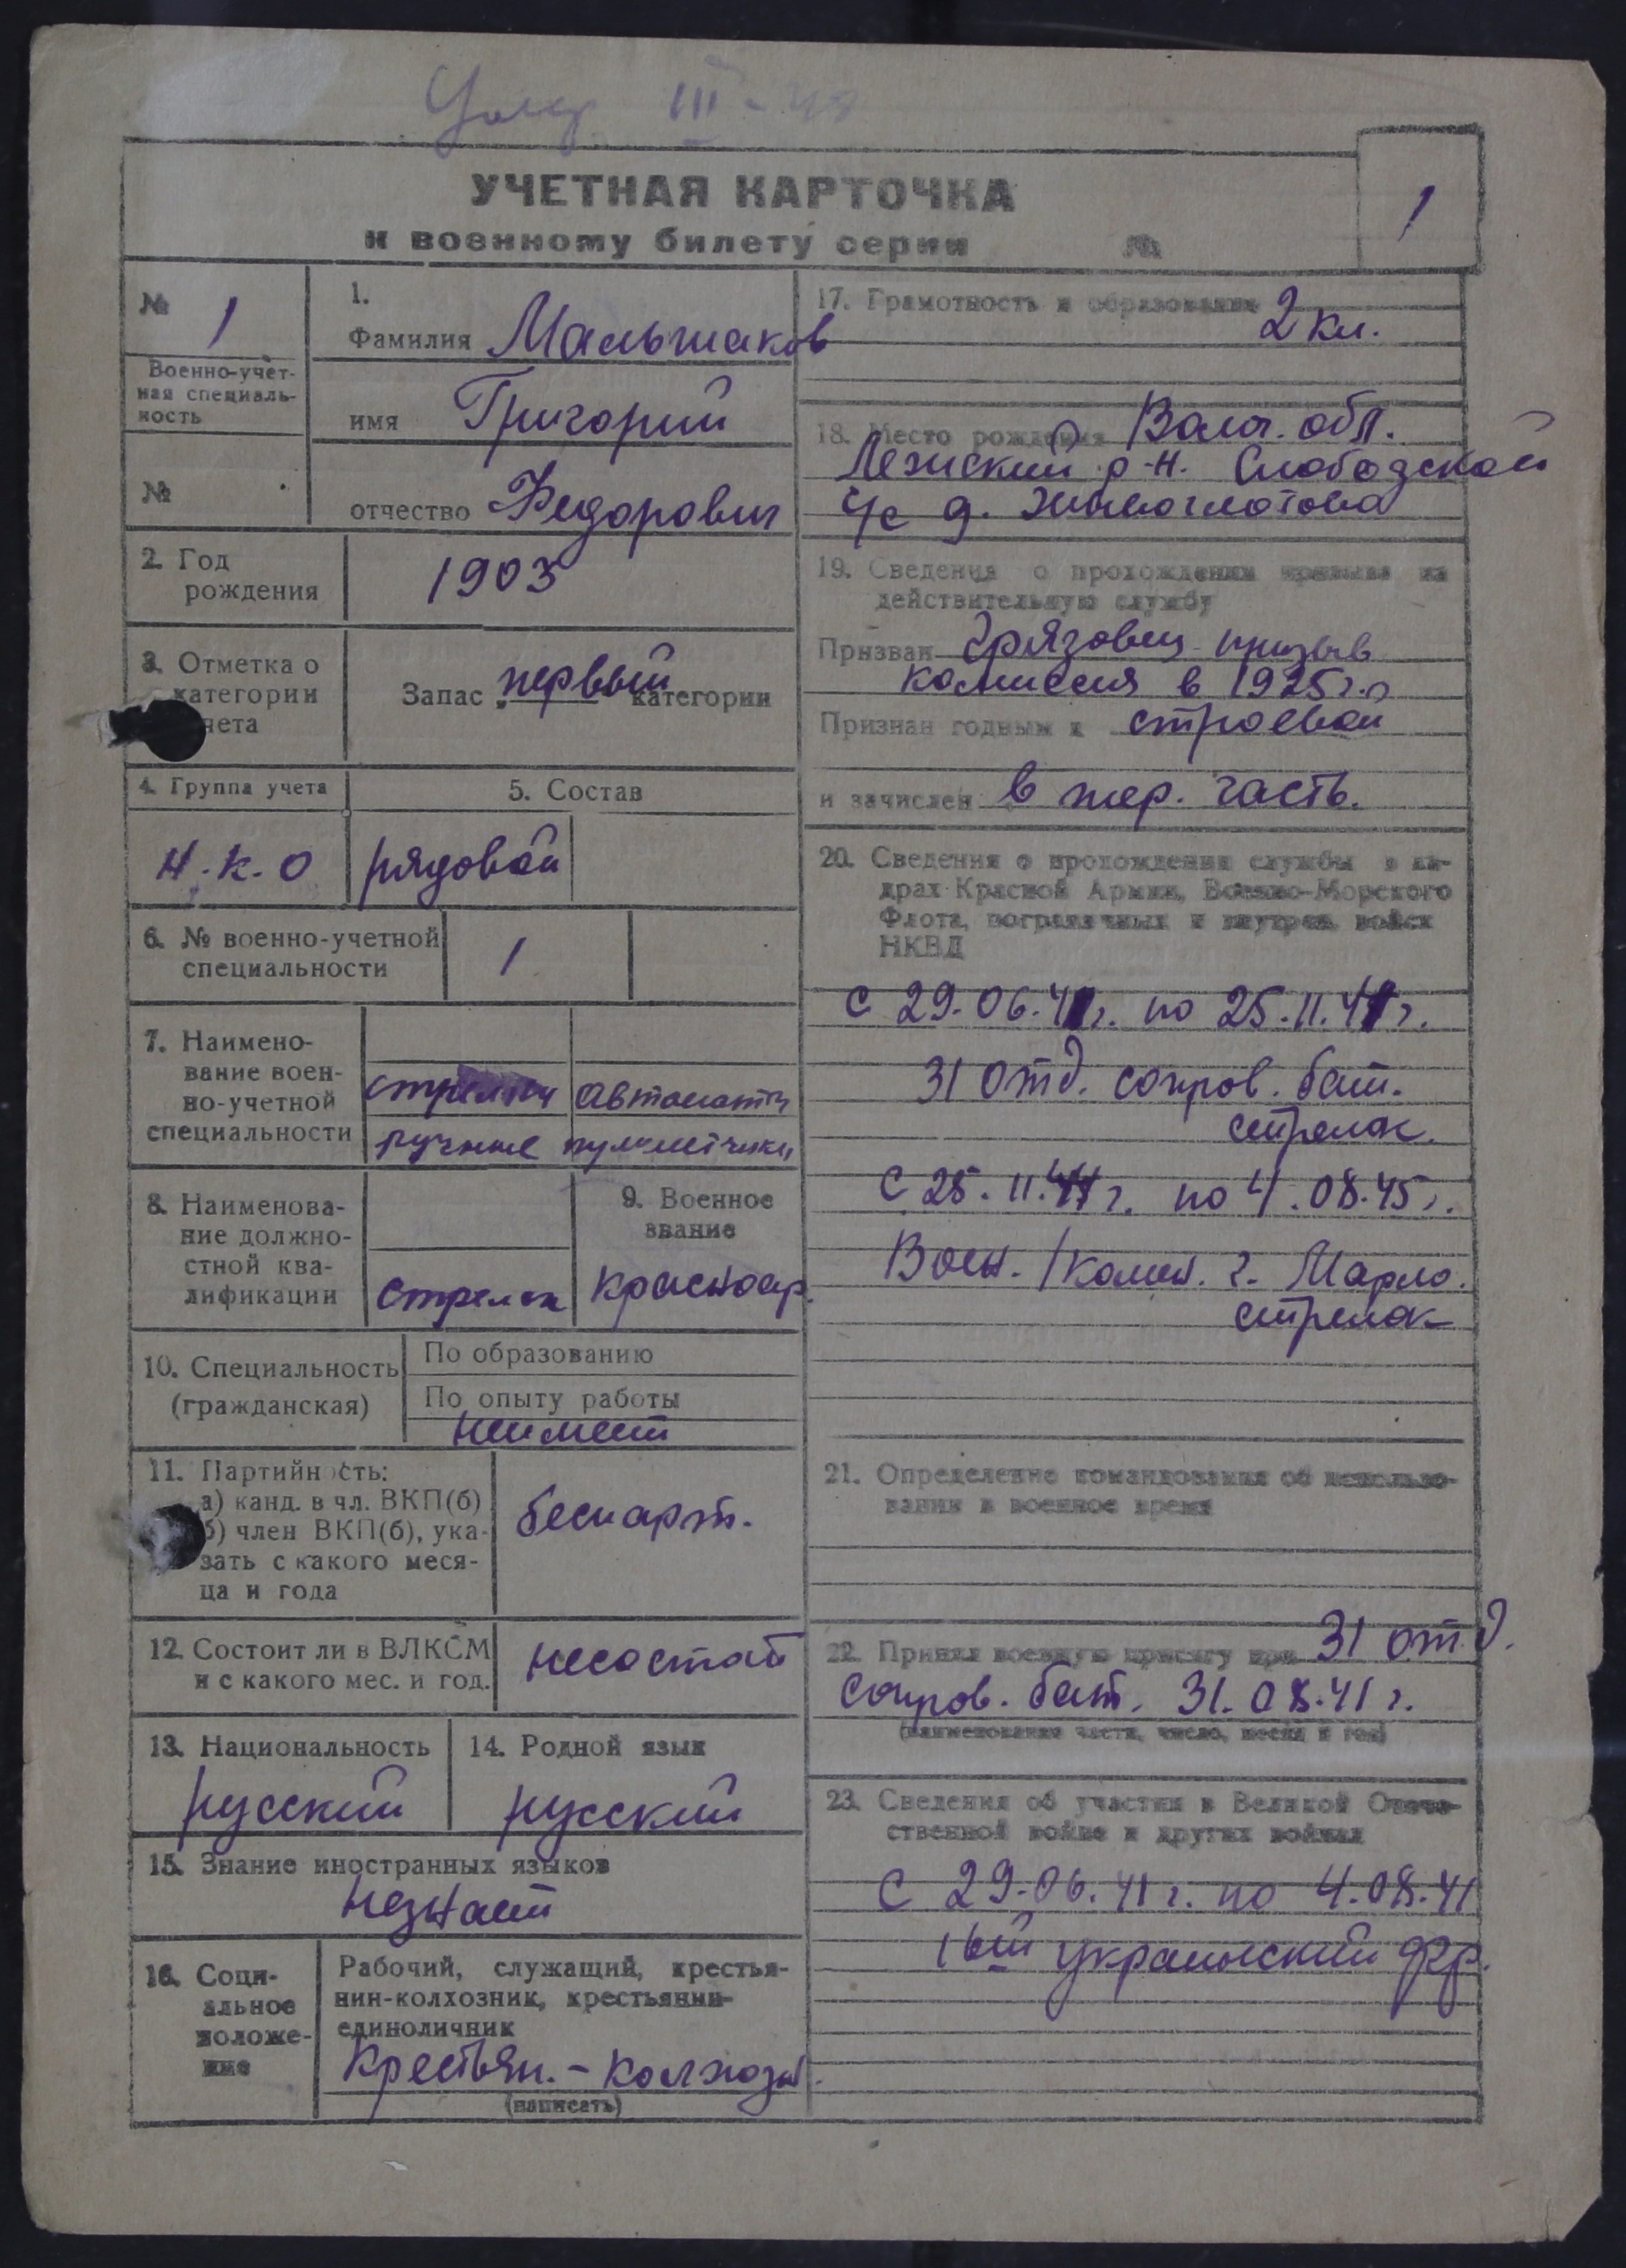 Умер III-48
УЧЕТНАЯ КАРТОЧКА
к военному билету серии №
1
№ 1
Военно-учет-
ная специаль-
ность
№
1.
Фамилия Малышаков
имя Григорий
отчество Федорович
2. Год
рождения
1903
3. Отметка о
категории
учета
Запас первый категории
4. Группа учета
5. Состав
Н.К.О
рядовой
6. № военно-учетной
специальности
1
7. Наимено-
вание воен-
но-учетной
специальности
стрелки автоматч
ручные пулеметчики
8. Наименова-
ние должно-
стной ква-
лификации
стрелок
9. Военное
звание
красноар.
10. Специальность
(гражданская)
По образованию
По опыту работы
неимеет
11. Партийность:
а) канд. в чл. ВКП(б)
б) член ВКП(б), ука-
зать с какого меся-
ца и года
беспарт.
12. Состоит ли в ВЛКСМ
и с какого мес. и год.
несостоит
13. Национальность
русский
14. Родной язык
русский
15. Знание иностранных языков
незнает
16. Соци-
альное
положе-
ние
Рабочий, служащий, крестья-
нин-колхозник, крестьянин-
единоличник
Крестьян.-колхозн.
(написать)
17. Грамотность и образование
2 кл.
18. Место рождения Волог. обл.
Лежский р-н. Слободской
с/с д.
19. Сведения о прохождении призыва на
действительную службу
Призван Грязовец. призыв
комиссия в 1925 г.
Признан годным к строевой
и зачислен в тер. часть.
20. Сведения о прохождении службы в ка-
драх Красной Армии, Военно-Морского
Флота, пограничных и внутрен. войск
НКВД
С 29.06.41г. по 25.11.41г.
31 отд. сопров. бат.
стрелок.
С 25.11.44г. по 4.08.45г.
Воен./комен. г.
стрелок
21. Определение командования об использо-
вании в военное время
22. Принял военную присягу при 31 отд.
сопров. бат. 31.08.41 г.
(наименование части, число, месяц и год)
23. Сведения об участии в Великой Отече-
ственной войне и других войнах
С 29.06.41 г. по 4.08.41
1ый украинский фр.